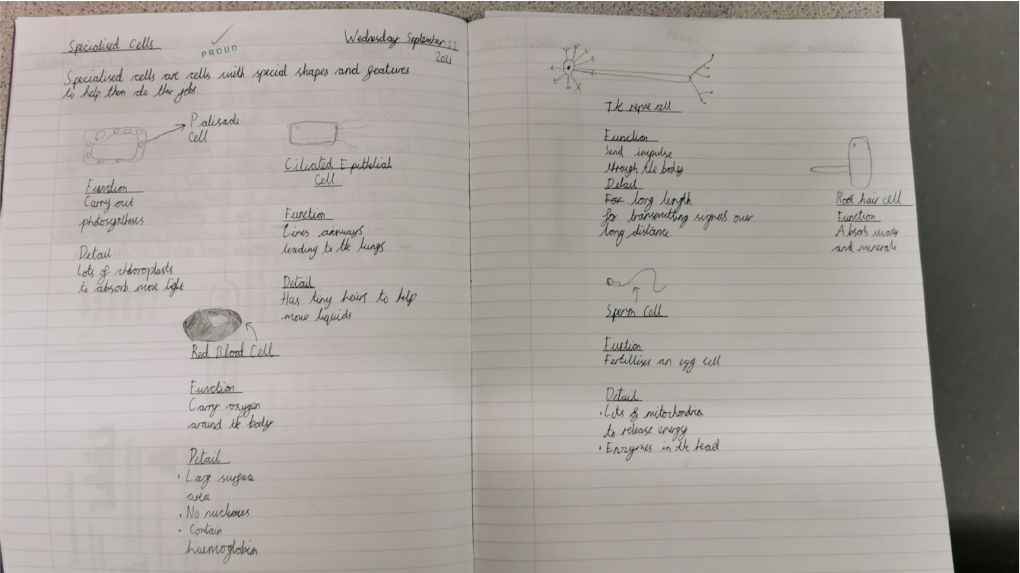 Specialised Cells
PROUD
Wednesday September 22
2021
Specialised cells are cells with special shapes and features
to help them do their jobs.
Palisade
cell
Function
Carry out
photosynthesis
Detail
Lots of chloroplasts
to absorb more light
Ciliated Epithelial
Cell
Function
Lines airways
leading to the lungs
Detail
Has tiny hairs to help
move liquids
Red Blood Cell
Function
Carry oxygen
around the body
Detail
• Larg surface
area
• No nucleus
• Contain
haemoglobin
The nerve cell
Function
Send impulse
through the body
Detail
For long length
for transmitting signals over
long distance
Root hair cell
Function
Absorb water
and minerals
Sperm Cell
Fuction
Fertillises an egg cell
Detail
• Lots of mitochondria
to release energy
• Enzymes in the head